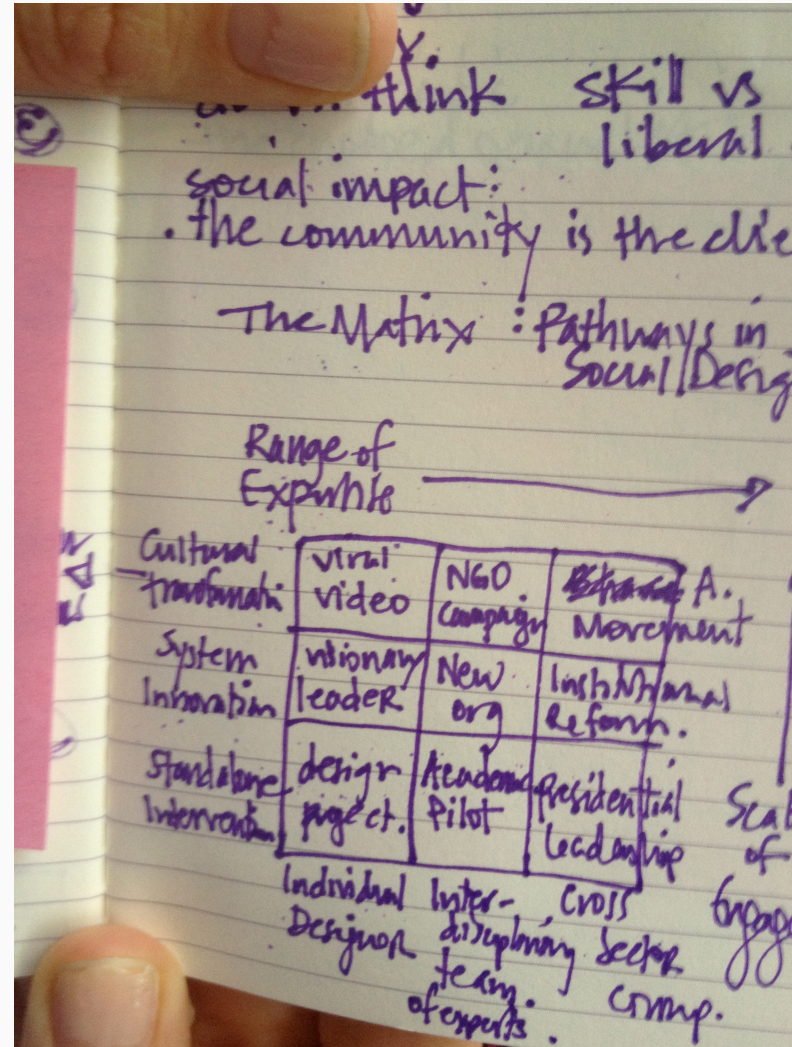 think skill vs
liberal
social impact:
. the community is the clie
The Matrix : Pathways in
Social/Desig
Range of
Expertise
Cultural
viral
video
NGO
Campaign
A.
Movement
System
Innovation
visionary
leader
New
org
Institutional
Reform.
Standalone
Intervention
design
project.
Academic
Pilot
Presidential
leadership
Scal
of
Engage
Individual
Designor
Inter-
disciplining
team.
of experts.
Cross
Sector
comp.